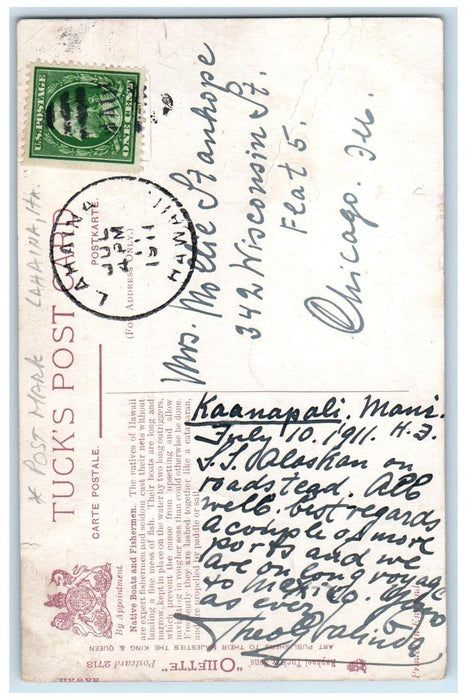 * POST MARK LAHAINA, HA.
TUCK'S POST CARD
CARTE POSTALE. POSTKARTE.
(FOR ADDRESS ONLY.)
U.S. POSTAGE
ONE CENT
LAHAINA
JUL
4 PM
1911
HAWAII
By Appointment.
Native Boats and Fishermen. The natives of Hawaii
are expert fishermen and seldom cast their nets without
landing a fine mess of fish. Their boats are long and
narrow, kept in place on the water by two long outriggers,
which prevent the canoe from upsetting and allow
navigation in rougher seas than could otherwise be done.
Frequently they are lashed together like a catamaran,
and are propelled by paddle or sail.
Raphael Tuck & Sons'
"OILETTE" Postcard 2718
ART PUBLISHERS TO THEIR MAJESTIES THE
HAWAII.
Mrs. Mollie Stanhope
342 Wisconsin St.
Flat 5.
Chicago. Ill.
Kaanapali. Maui.
July 10. 1911. H.I.
S.S. Alaskan on
roadstead. All
well. best regards,
a couple of more
ports and we
are on long voyage
to Mexico. Yours
as ever
Theo